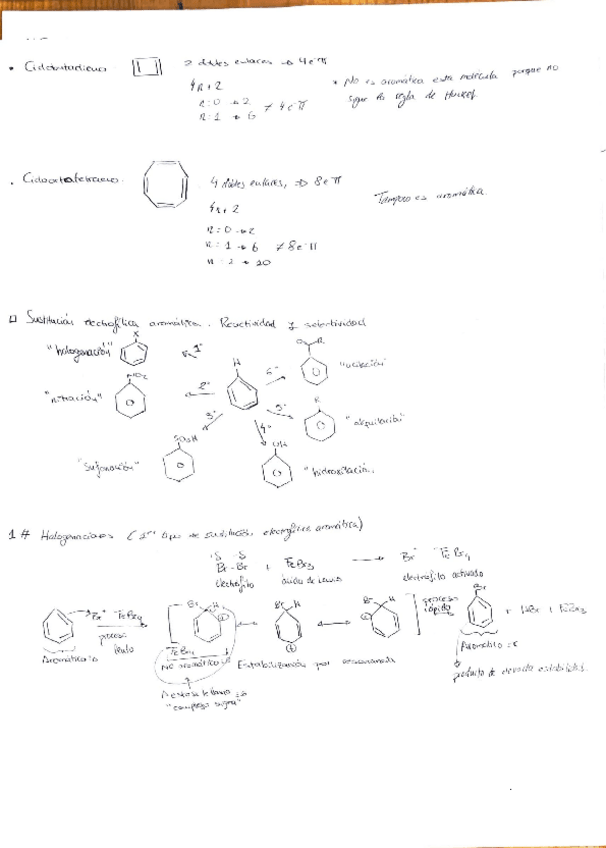 • Ciclobutadieno. 2 dobles enlaces → 4 e⁻π * No es aromática esta molécula porque no
sigue la regla de Huckel.
4n+2
n=0 → 2
n=1 → 6 ≠ 4 e⁻π
• Ciclooctatetraeno. 4 dobles enlaces, → 8 e⁻π Tampoco es aromática.
4n+2
n=0 → 2
n=1 → 6 ≠ 8 e⁻π
n=2 → 10
□ Sustitución electrofílica aromática. Reactividad y selectividad
"halogenación" X 1º
"nitración" NO₂ 2º
H
6º O R "acilación"
5º R "alquilación"
3º SO₃H "Sulfonación"
4º OH "hidroxilación"
1# Halogenaciones (1er tipo de sustitución electrofílica aromática)
Br-Br + FeBr₃ → Br⁺ FeBr₄
electrófilo ácido de Lewis electrófilo activado
Br⁺ FeBr₄ proceso lento
Br H
Br H
Br H
proceso rápido
Br + HBr + FeBr₃
Aromático
FeBr₄
No aromático Estabilización por resonancia
Aromático
producto de elevada estabilidad.
"complejo sigma"